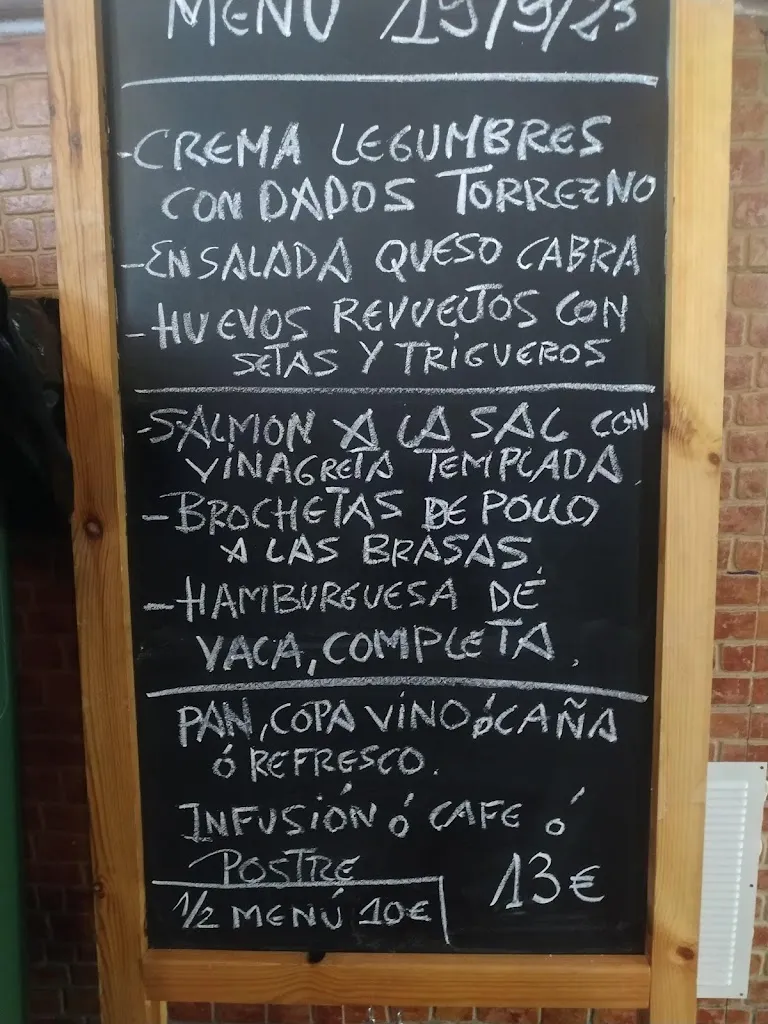 MENÚ 19/9/23
-CREMA LEGUMBRES
CON DADOS TORREZNO
-ENSALADA QUESO CABRA
-HUEVOS REVUELTOS CON
SETAS Y TRIGUEROS
-SALMON A LA SAL CON
VINAGRETA TEMPLADA.
-BROCHETAS DE POLLO
A LAS BRASAS.
-HAMBURGUESA DE
VACA, COMPLETA.
PAN, COPA VINO Ó CAÑA
Ó REFRESCO.
INFUSIÓN Ó CAFÉ Ó
POSTRE
13€
1/2 MENÚ 10€